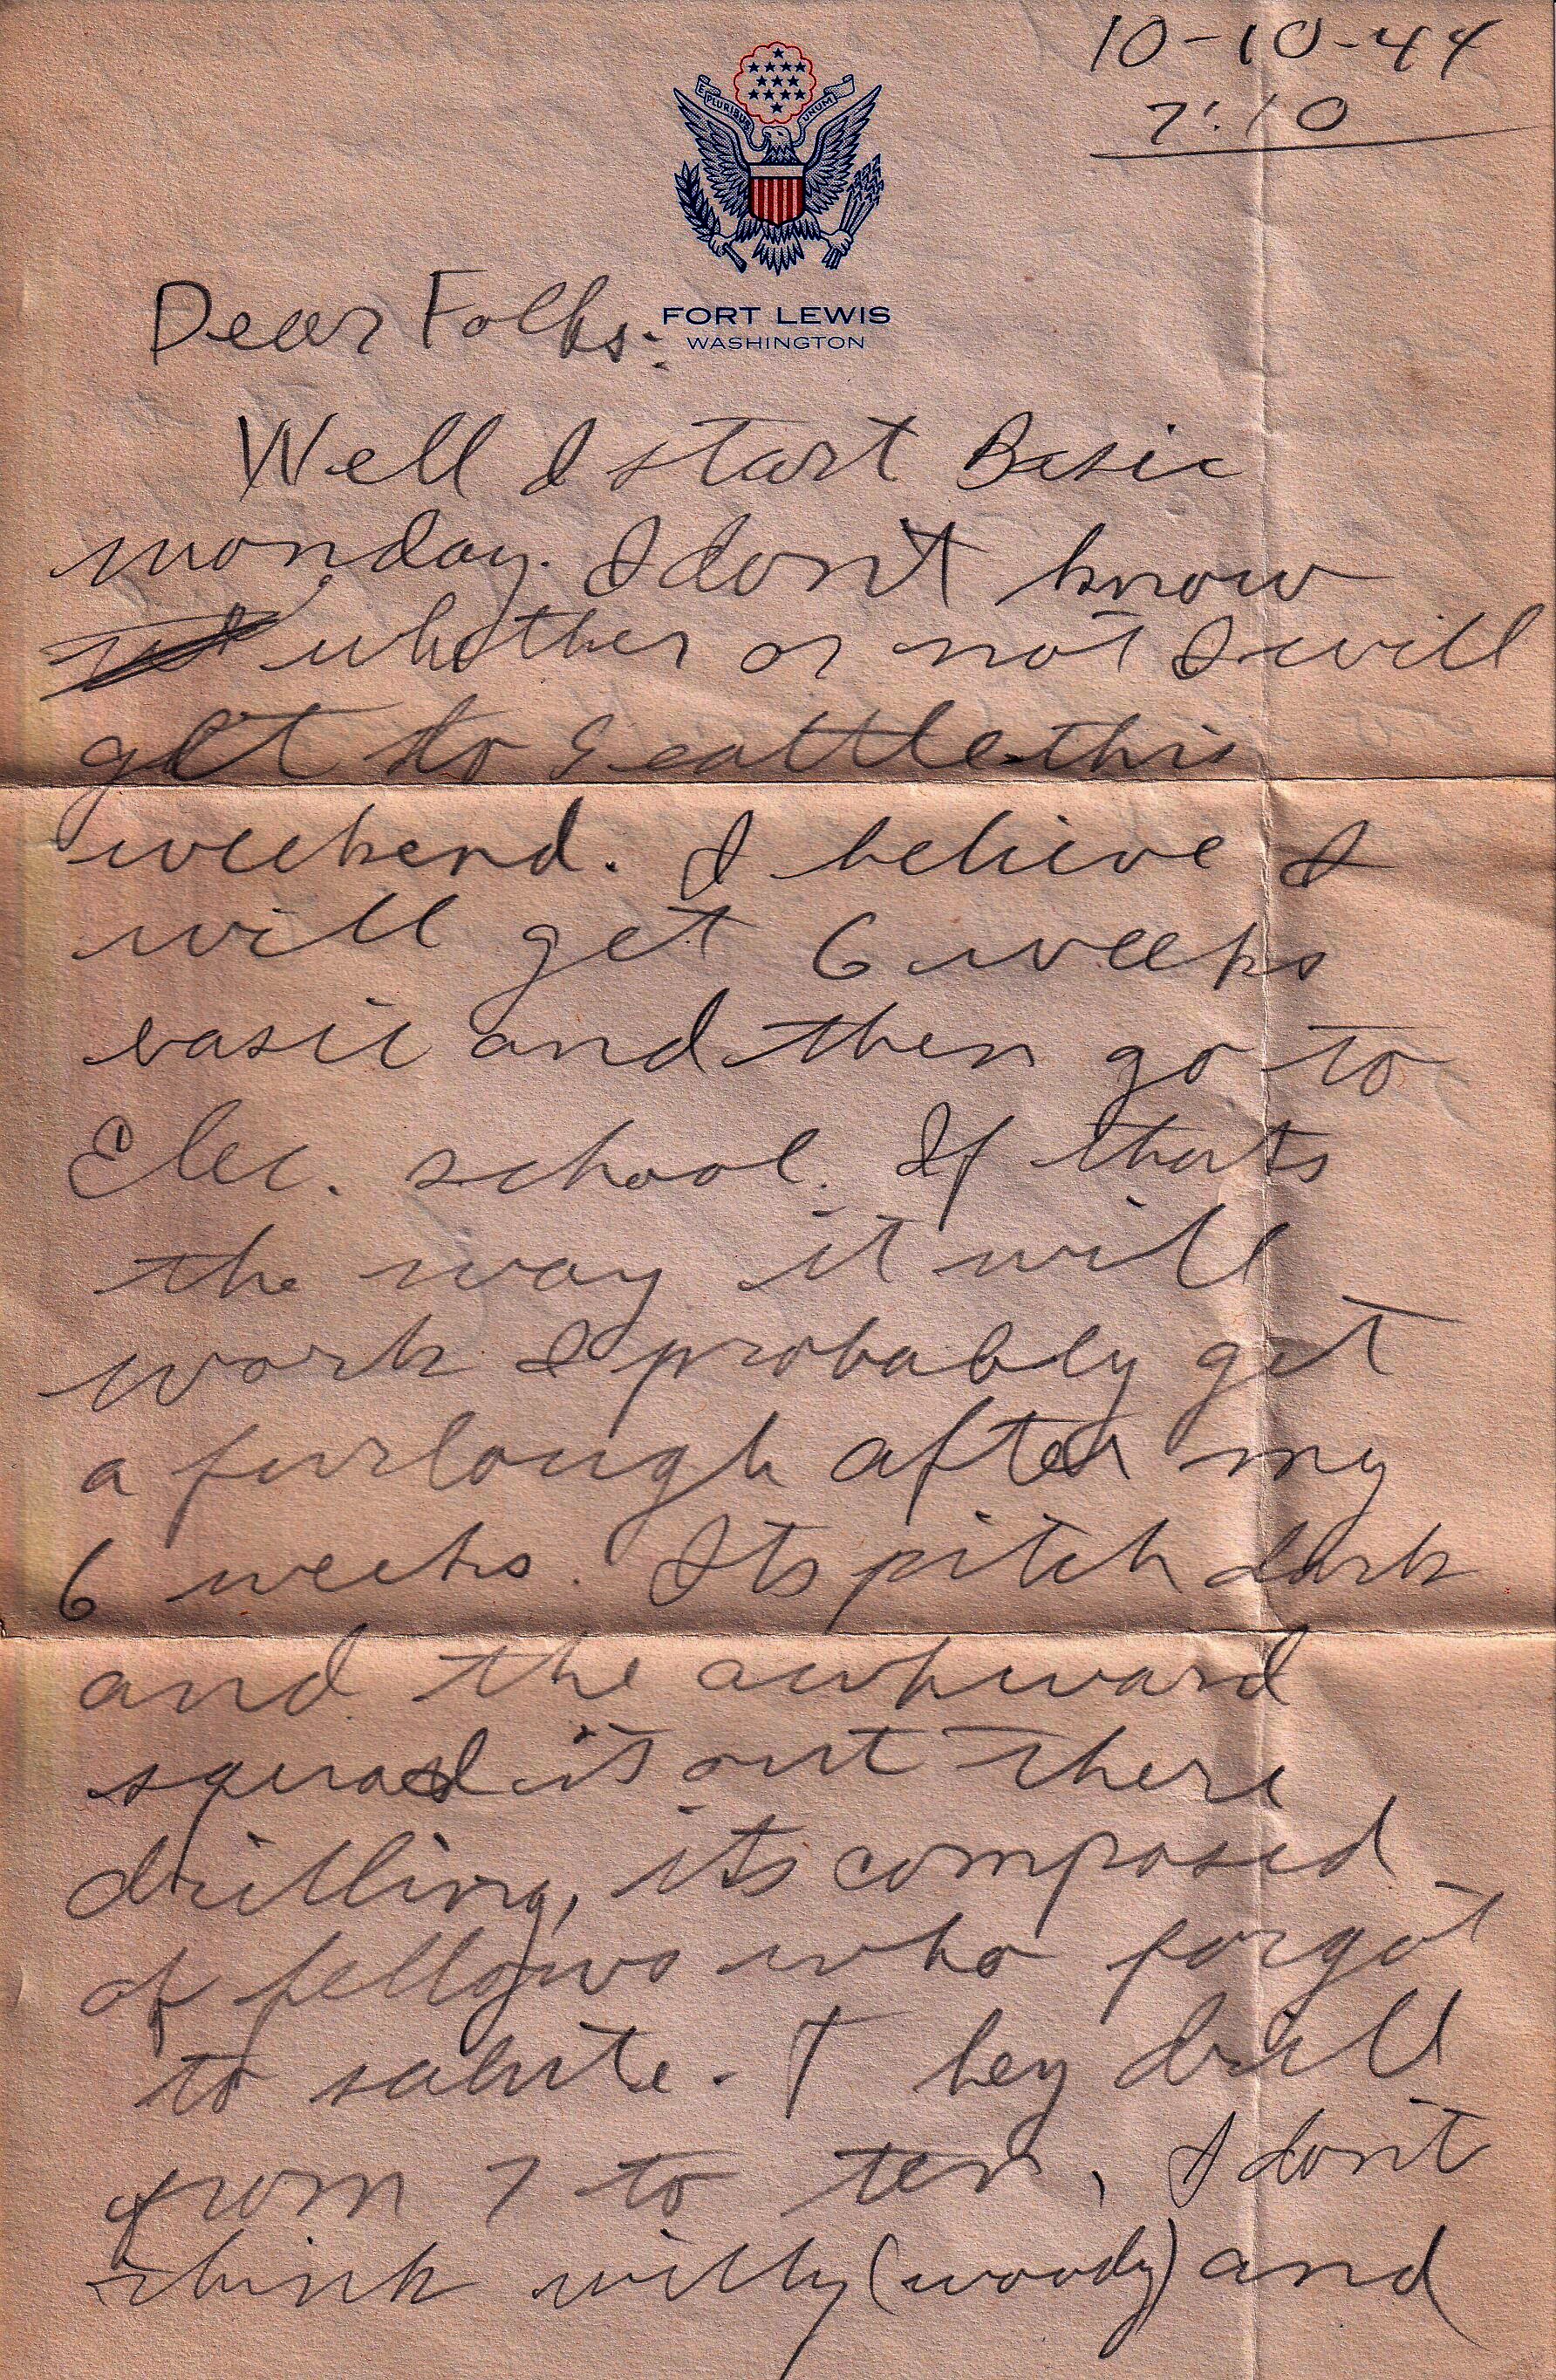 10-10-44
7:10
E PLURIBUS UNUM
FORT LEWIS
WASHINGTON
Dear Folks:
Well I start Basic
monday. I don't know
whether or not I will
get to Seattle this
weekend. I believe I
will get 6 weeks
basic and then go to
Elec. school. If thats
the way it will
work I probably get
a furlough after my
6 weeks. Its pitch dark
and the awkward
squad is out there
drilling, its composed
of fellows who forgot
to salute. They drill
from 7 to ten, I don't
think willy (woody) and